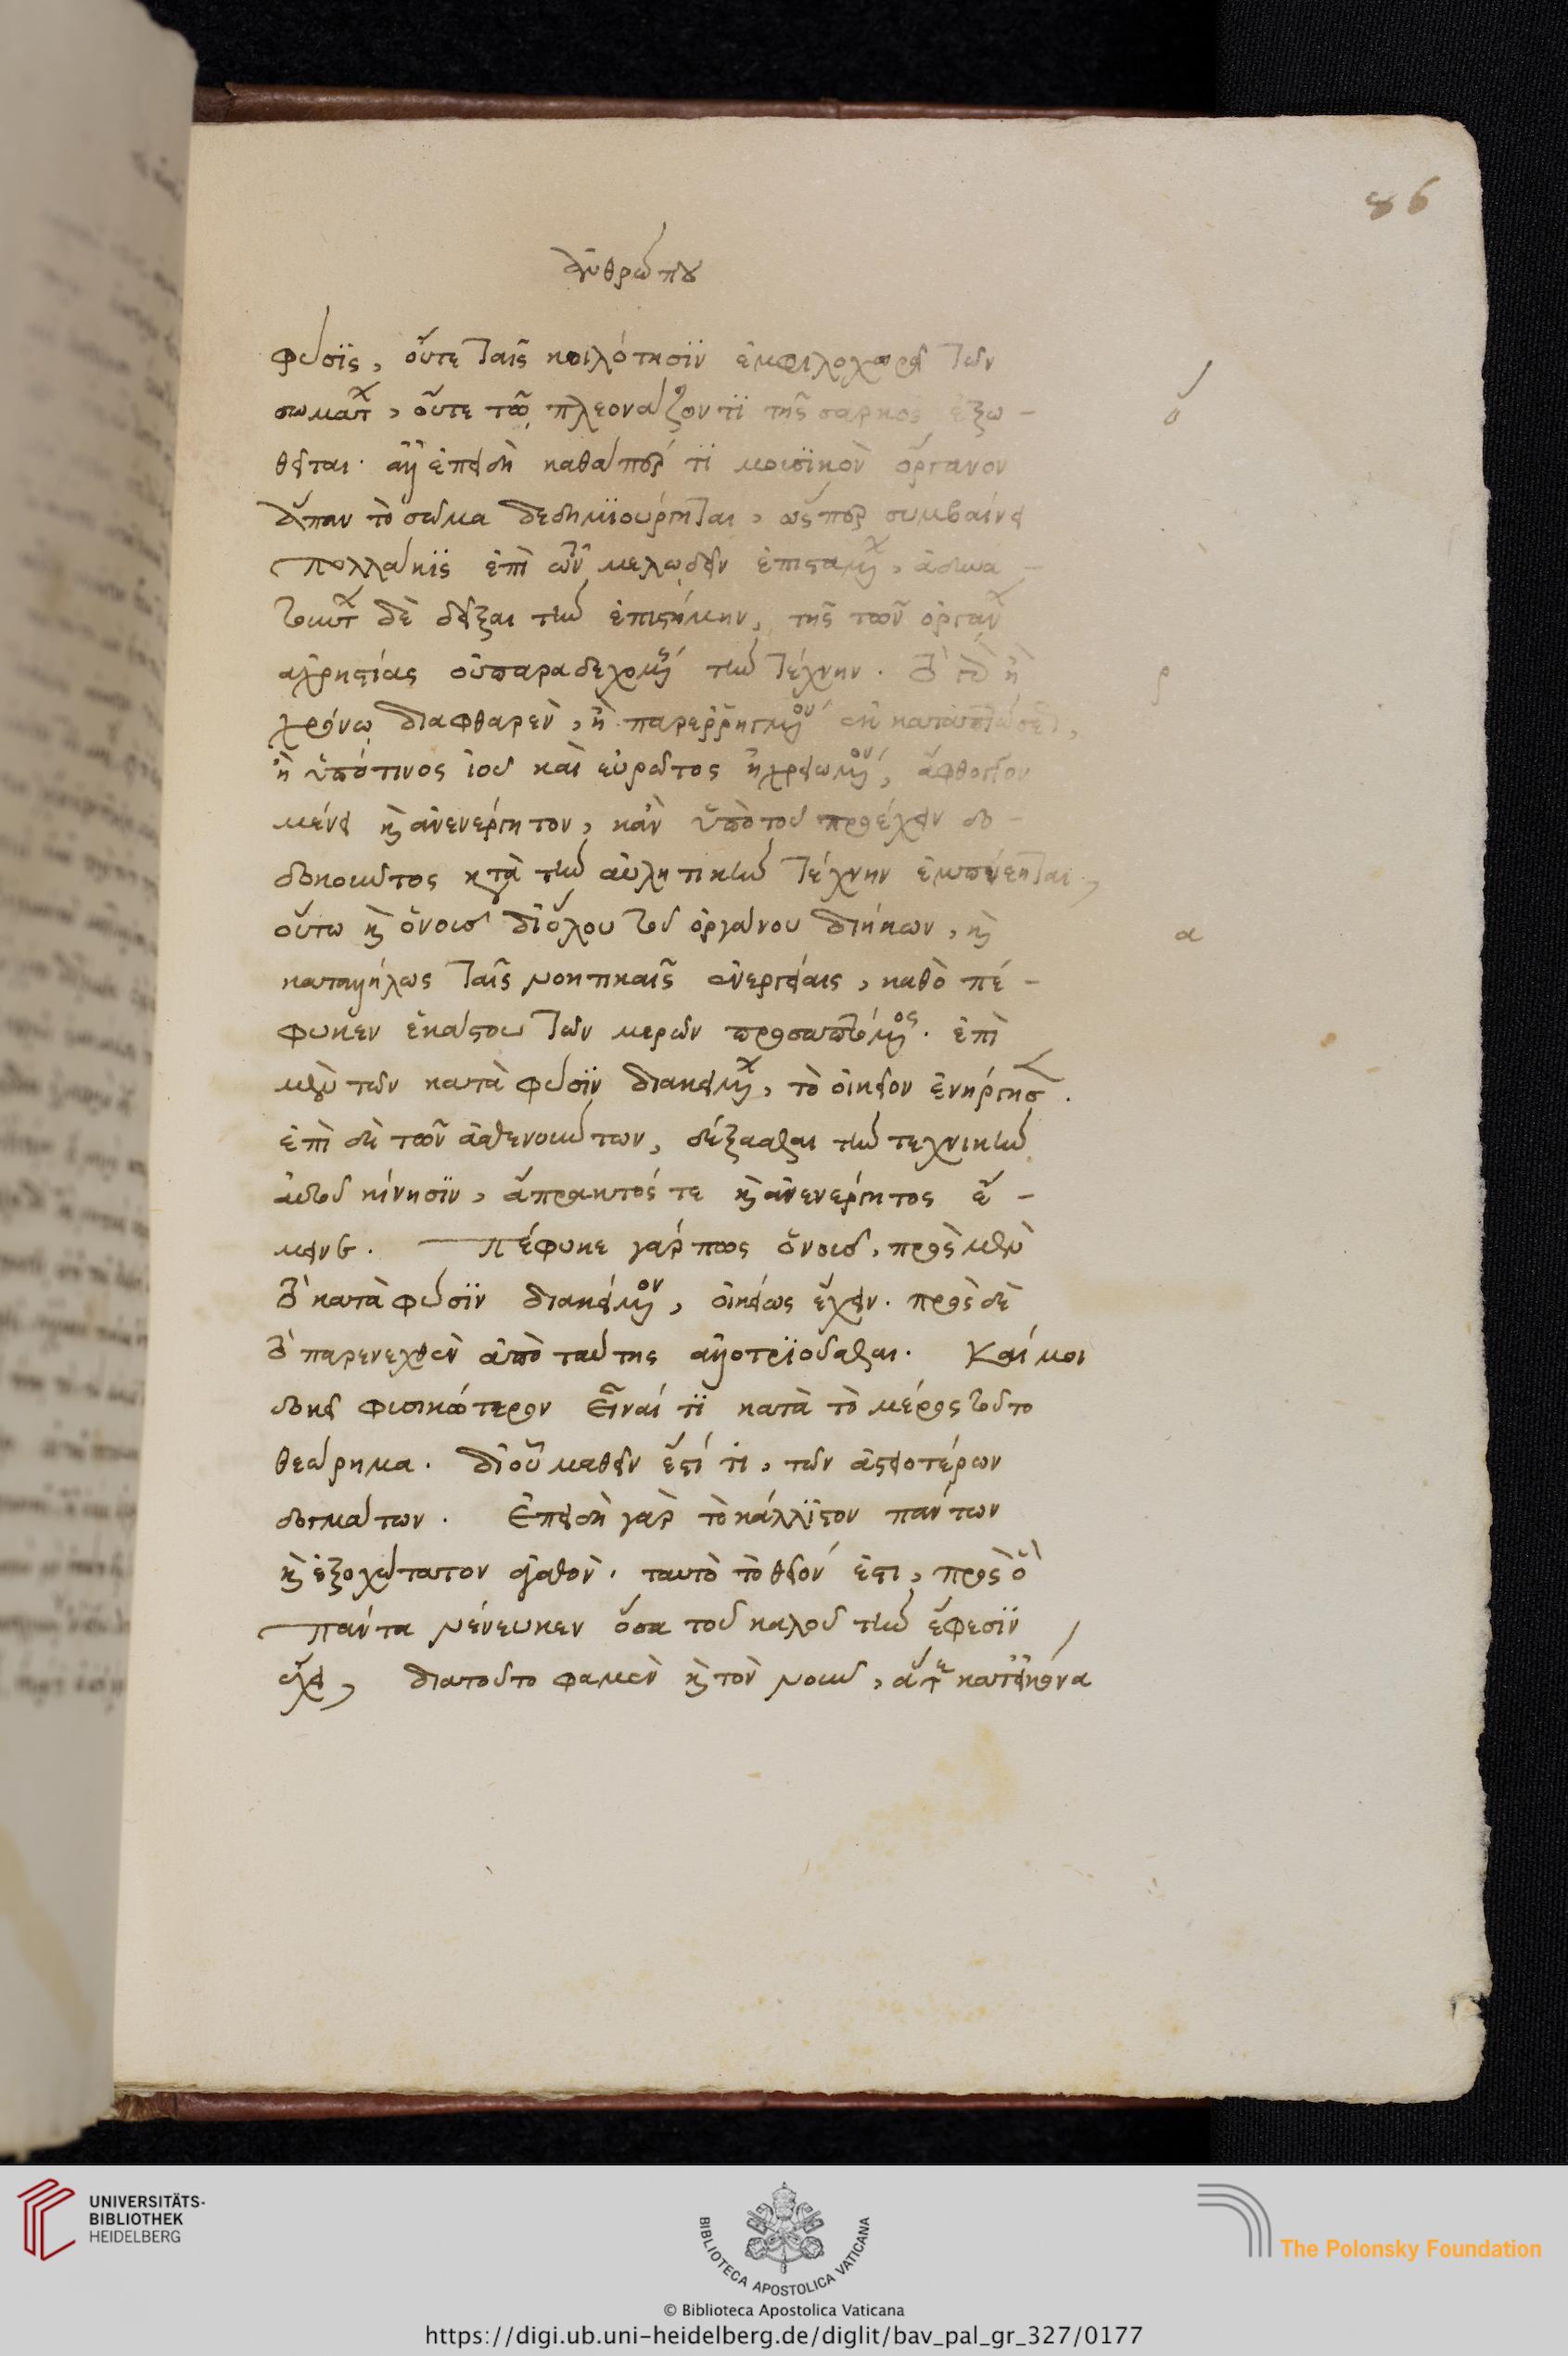 ἀνθρώπου
φύσϊς, οὔτε ταῖς κοιλότησϊν ἐμφιλοχωρεῖ τῶν
σωμάτων, οὔτε τῷ πλεονάζοντϊ τῆς σαρκὸς ἐξω-
θεῖται· ἀλλ' ἐπειδὴ καθάπερ τϊ μουσϊκὸν ὄργανον
ἅπαν τὸ σῶμα δεδημϊούργηται, ὥσπερ συμβαίνει
πολλάκϊς ἐπὶ τῶν μελῳδεῖν ἐπισταμένων, ἀδυνα-
τούντων δὲ δεῖξαι τὴν ἐπιστήμην, τῆς τῶν ὀργάνων
ἀχρηστίας οὐ παραδεχομένης τὴν τέχνην. τὸ γὰρ ἢ
χρόνῳ διαφθαρὲν, ἢ παρερρηγμένον ἐκ
ἢ ὑπό τινος ἰοῦ καὶ εὐρῶτος ἠχρειωμένον, ἄφθογγον
μένει καὶ ἀνενέργητον, κἂν ὑπὸ τοῦ προέχειν δο-
δοκοῦντος κατὰ τὴν αὐλητικὴν τέχνην ἐμπνέηται,
οὕτω καὶ ὁ νοῦς δι' ὅλου τοῦ ὀργάνου διήκων, καὶ
καταλλήλως ταῖς νοητικαῖς ἐνεργείαις, καθὸ πέ-
φυκεν ἑκάστου τῶν μερῶν προσαπτόμενος. ἐπὶ
μὲν τῶν κατὰ φύσϊν διακειμένων, τὸ οἰκεῖον ἐνήργησεν.
ἐπὶ δὲ τῶν ἀσθενούντων, δέξασθαι τὴν τεχνικὴν
αὐτοῦ κίνησϊν, ἄπρακτός τε καὶ ἀνενέργητος ἔ-
μεινε. πέφυκε γάρ πως ὁ νοῦς, πρὸς μὲν
τὸ κατὰ φύσϊν διακείμενον, οἰκείως ἔχειν. πρὸς δὲ
τὸ παρενεχθὲν ἀπὸ ταύτης ἀλλοτρϊοῦσθαι. Καί μοι
δοκεῖ φυσικώτερον εἶναί τϊ κατὰ τὸ μέρος τοῦτο
θεώρημα. δι' οὗ μαθεῖν ἔστί τι, τῶν ἀστειοτέρων
δογμάτων. Ἐπειδὴ γὰρ τὸ κάλλϊστον πάντων
καὶ ἐξοχώτατον ἀγαθὸν, ταυτὸ τὸ θεῖόν ἐστι, πρὸς ὃ
πάντα νένευκεν ὅσα τοῦ καλοῦ τὴν ἔφεσϊν
ἔχει, διατοῦτο φαμὲν καὶ τὸν νοῦν, ἅτε κατ' εἰκόνα
α
86
UNIVERSITÄTS-
BIBLIOTHEK
HEIDELBERG
BIBLIOTECA APOSTOLICA VATICANA
The Polonsky Foundation
© Biblioteca Apostolica Vaticana
https://digi.ub.uni-heidelberg.de/diglit/bav_pal_gr_327/0177